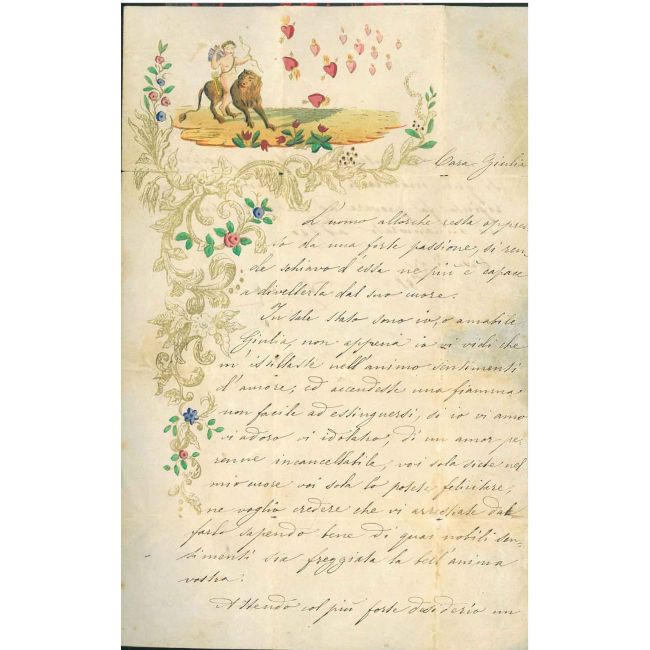 Cara Giulia
L'uomo allorchè resta oppres-
so da una forte passione, si ren-
de schiavo d'essa ne più è capace
a divellerla dal suo cuore.
In tale stato sono io, o amabile
Giulia, non appena io vi vidi che
m'istillaste nell'animo sentimenti
d'amore, ed accendeste una fiamma
non facile ad estinguersi, si io vi amo
vi adoro vi idolatro, di un amor pe-
renne incancellabile, voi sola siete nel
mio cuore voi sola lo potete felicitare,
ne voglio credere che vi arrestate dal
farlo sapendo bene di quai nobili sen-
timenti sia freggiata la bell'anima
vostra.
Attendo col più forte desiderio un